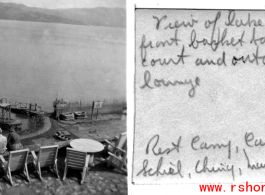 View of lake
front, basket ba
court and outd
lounge
Rest Camp, Ca
Schiel, Ching,
www.rsho